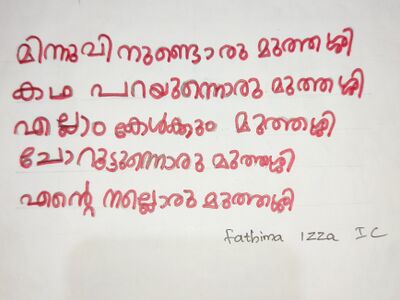 മിന്നുവിനുണ്ടൊരു മുത്തശ്ശി
കഥ പറയുന്നൊരു മുത്തശ്ശി
എല്ലാം കേൾക്കും മുത്തശ്ശി
ചോറൂട്ടുന്നൊരു മുത്തശ്ശി
എന്റെ നല്ലൊരു മുത്തശ്ശി
fathima izza I C